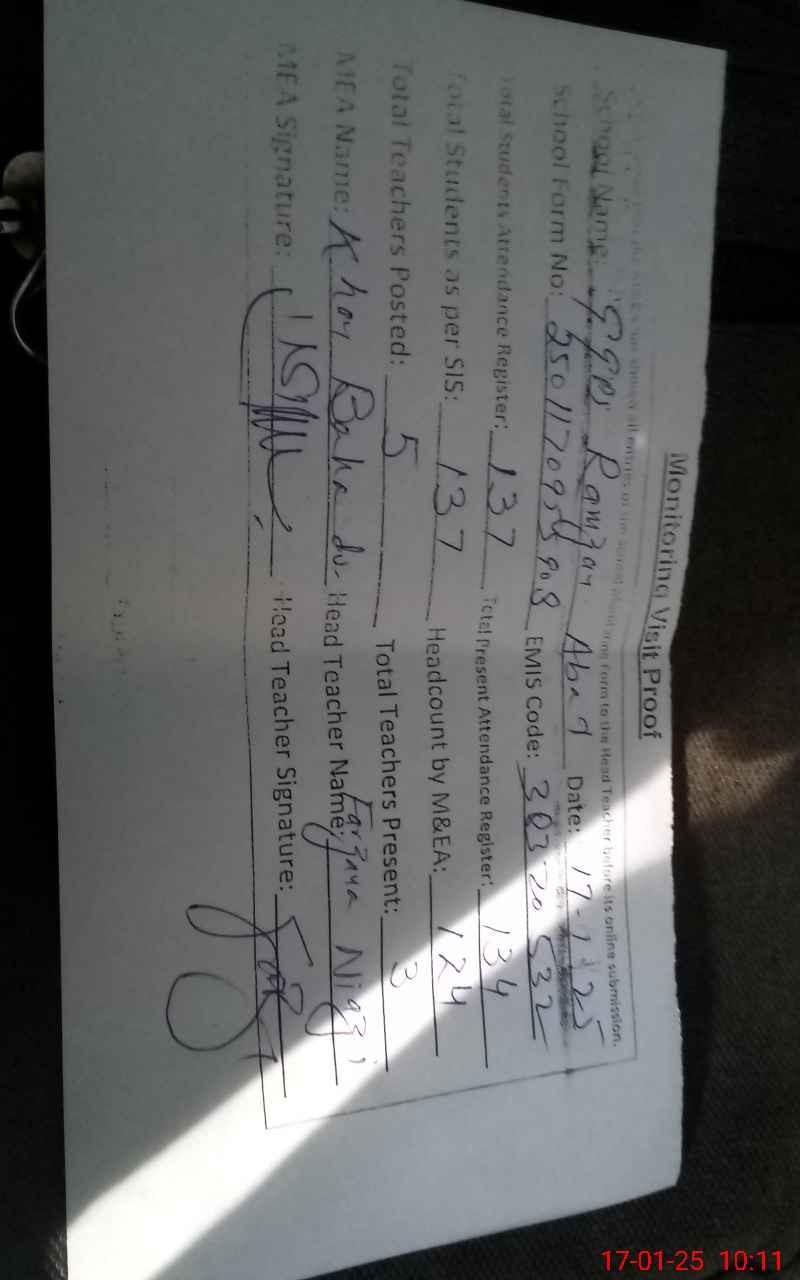 Monitoring Visit Proof
all entries of the school Monitoring Form to the Head Teacher before its online submission.
School Name: GGPS Ramzan Abad Date: 17-1-25
School Form No: EMIS Code: 30320532
Total Students Attendance Register: 137 Total Present Attendance Register: 134
Total Students as per SIS: 137 Headcount by M&EA: 124
Total Teachers Posted: 5 Total Teachers Present: 3
MEA Name: Khan Bahadur Head Teacher Name: Farzana Niazi
MEA Signature: Head Teacher Signature:
17-01-25 10:11